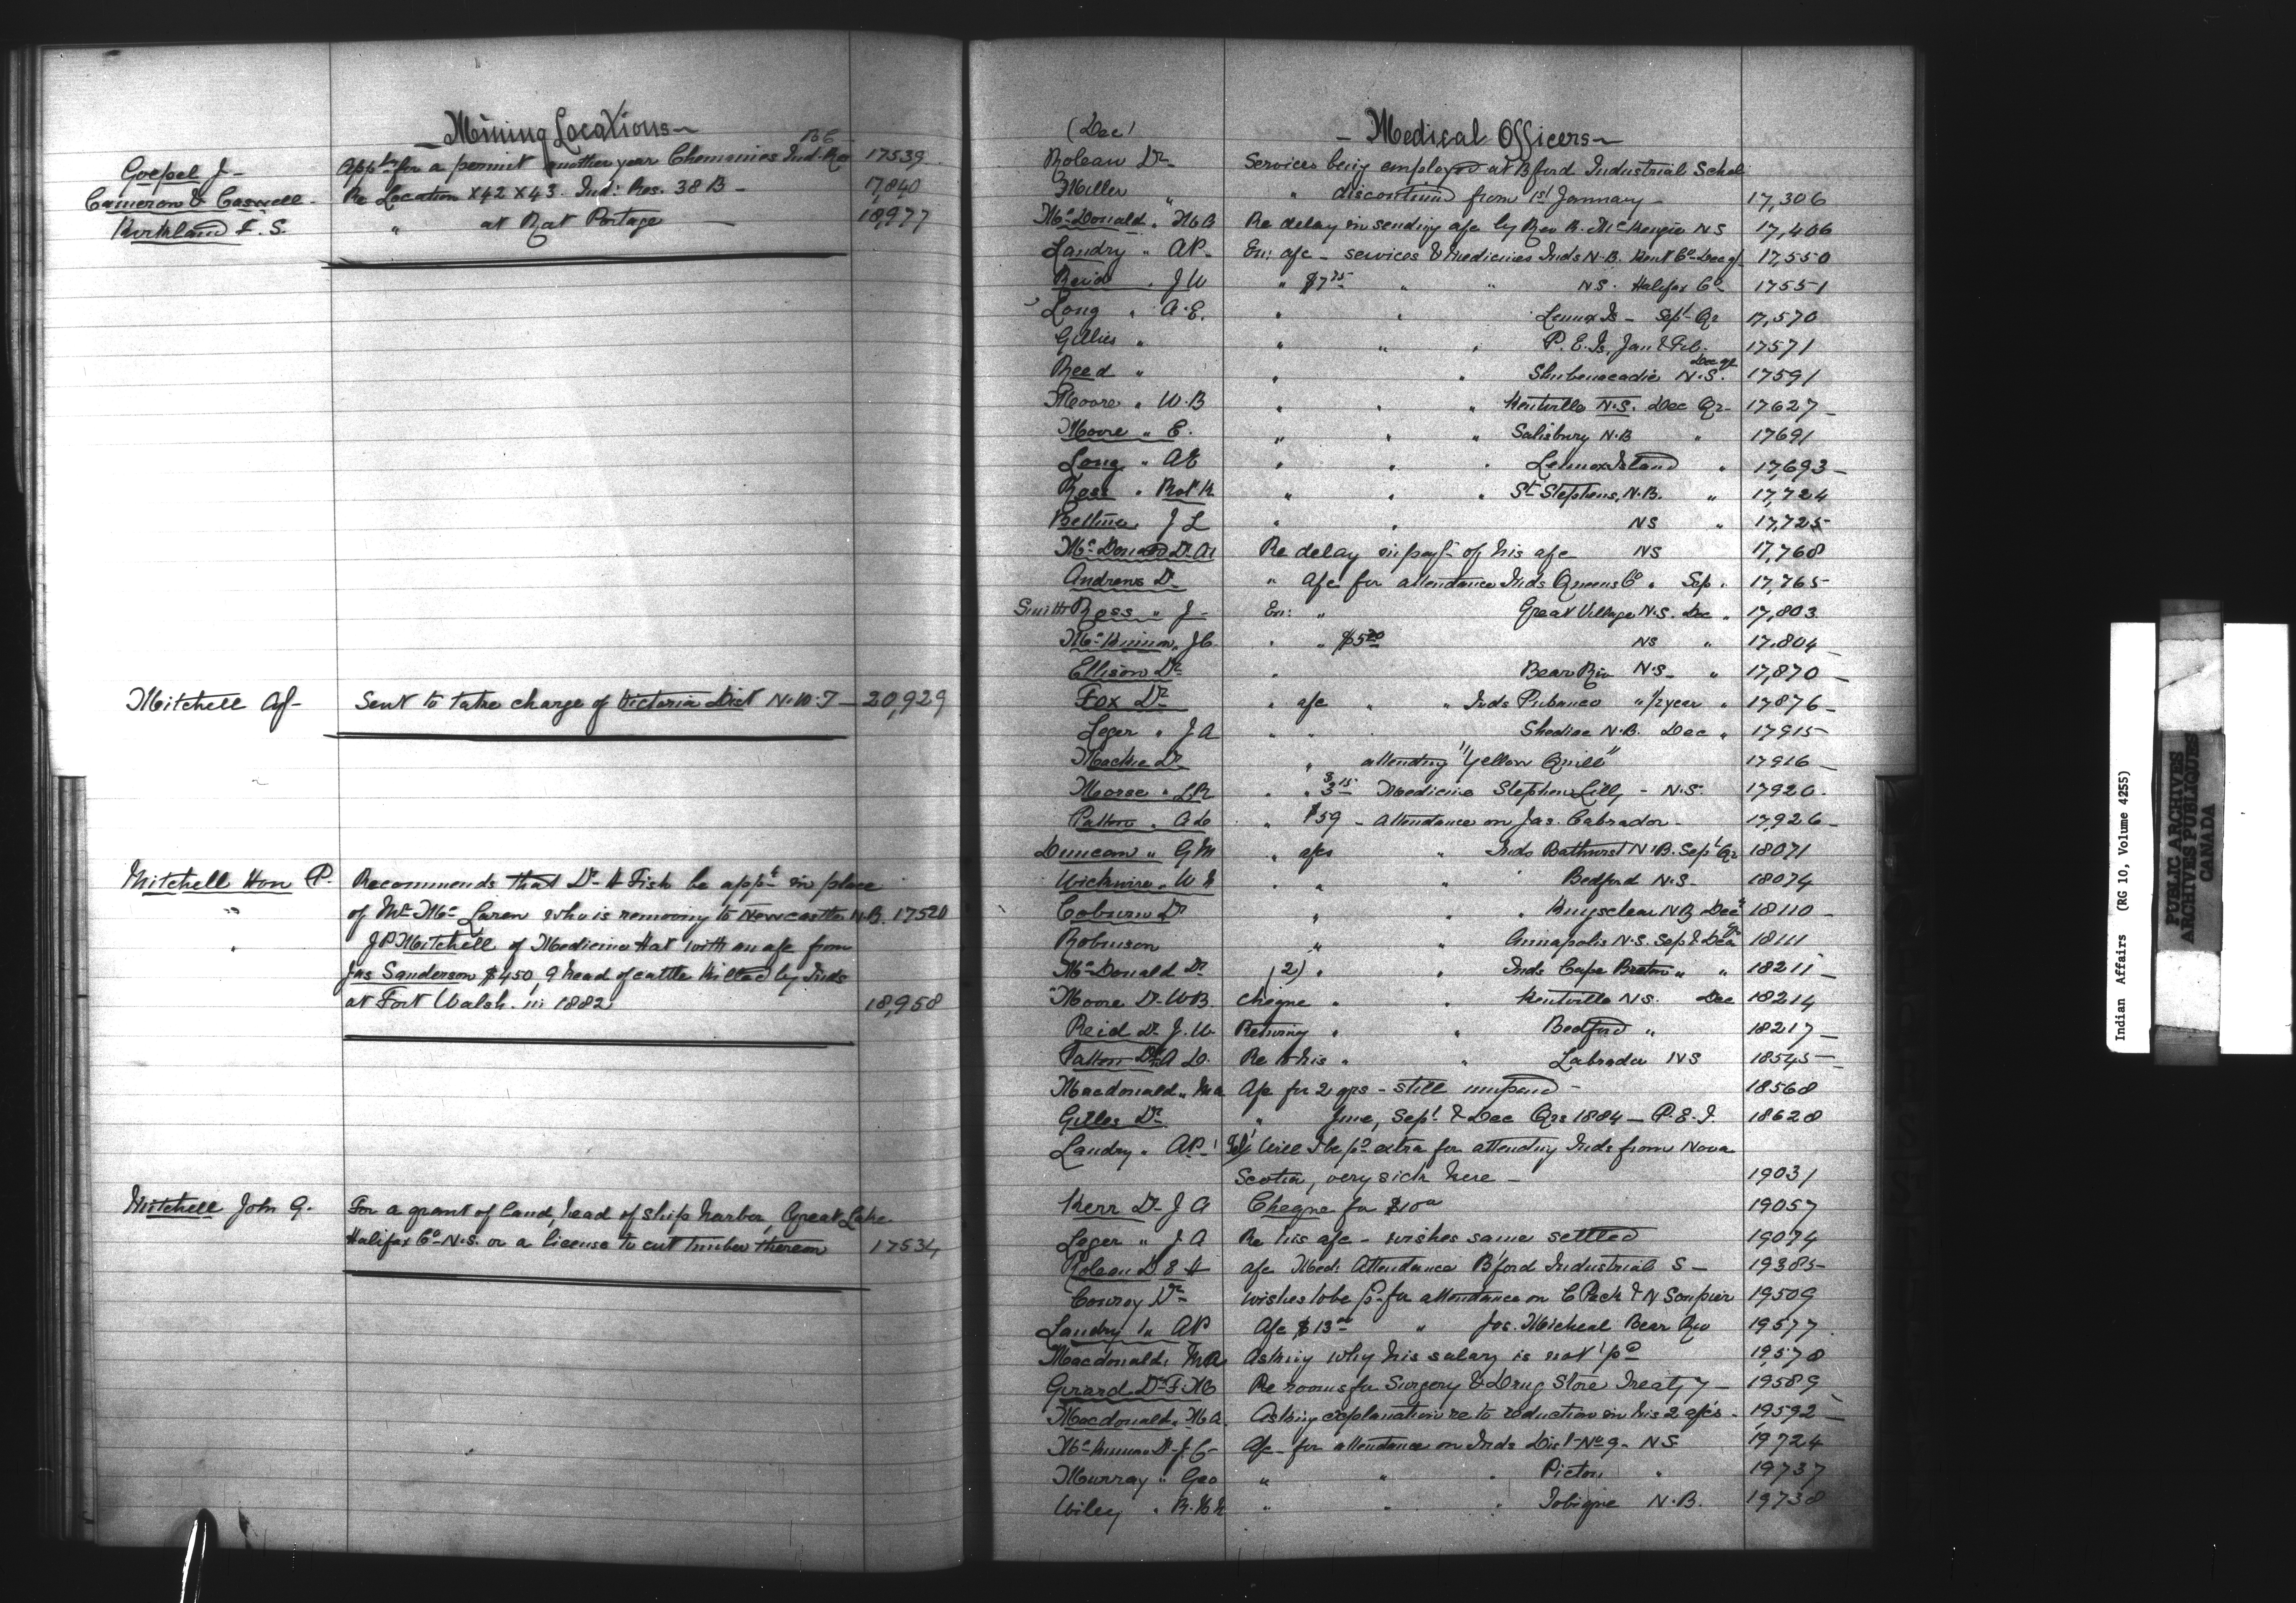 Mining Locations
Goepel J - Appln for a permit another year Chemanies Ind. Res B C 17539
Cameron & Caswell - Re Location X42 X43. Ind: Res. 38 B - 17,840
Kirkland F. S. " at Rat Portage - 18,977
Mitchell Af- Sent to take charge of Victoria Dist N.W.T - 20,929
Mitchell Hon P. Recommends that Dr H Fish be appt in place
" of Mc Laren who is removing to Newcastle N.B. 17520
" J P Mitchell of Medicine Hat with an a/c from
Jas Sanderson $450, 9 head of cattle killed by Inds
at Fort Walsh in 1882 18,958
Mitchell John G. For a grant of land, head of ship harbor, Great Lake
Halifax Co N.S. or a license to cut timber thereon 17534
(Dec) - Medical Officers -
Dr Services being employed at B'ford Industrial Schol
Miller " " discontinued from 1st January - 17,306
McDonald " M A Re delay in sending a/c by Rev R. McKenzie NS 17,406
Landry " AP - En: a/c - services & medicines Inds N.B. Kent Co Dec qr 17,550
Reid " J W " $7 75 " " NS. Halifax Co 17551
Long " A.E. " " Lennox Is - Sept Qr 17,570
Gillies " " " " P.E. Is, Jan & Feb. 17571
Reed " " " Shubenacadie N.S. Dec qr 17591
Moore " W.B " " " Kentville N.S. Dec Qr - 17627 -
Moore " E. " " " Salisbury N.B " 17691
Long " AE " " " Lennox Island " 17,693 -
Ross " Robt K " " " St Stephens, N.B. " 17,724
J L " " NS " 17,725
McDonald Dr M Re delay in payt of his a/c NS 17,768
Andrews Dr " a/c for attendance Inds Queens Co " Sep " 17,765
Smith Ross " J - En: " Great Village N.S. Dec " 17,803
McKinnon " J C " " $5 20 NS " 17,804 -
Ellison Dr " Bear Riv N.S - " 17,870 -
Fox Dr " a/c " " Inds Pubnico " 1/2 year " 17876 -
Leger " J A " " Shediac N.B. Dec " 17915
Mackie Dr " attending "Yellow Quill" 17916 -
Morse " L R " " $3 15 Medicine Stephen Lilly - N.S. 17920 -
Patton " A D " $59 - Attendance on Jas. Labrador - 17,926 -
Duncan " G M " a/cs " Inds Bathurst N.B. Sept Qr 18071
Wickwire " W N " " " Bedford N.S - 18074
Coburn Dr " " Kingsclear N.B Dec " 18110 -
Robinson " " Annapolis N.S. Sep & Dec Qr 18111
McDonald Dr (2) " " Inds Cape Breton " " 18211 -
Moore Dr W B Cheque " " Kentville N.S. Dec 18214
Reid Dr J. W. Returning " " Bedford " 18217 -
Patton Dr A D. Re to his " " Labrador NS 18545 -
Macdonald " M A A/c for 2 qrs - still unpaid - 18568
Gilles Dr " June, Sept & Dec Qrs 1884 - P.E.I. 18628
Landry " A P - Tel: Will I be pd extra for attending Inds from Nova
Scotia, very sick here - 19031
Kerr Dr J A Cheque for $10 00 19057
Leger " J A Re his a/c - wishes same settled 19074
Dr E H a/c Med: Attendance B'ford Industrial S - 19385
Conroy Dr wishes to be pd for attendance on C Peck & N Soupier 19509
Landry " A P A/c $13 00 " Jos. Micheal Bear Riv 19577
Macdonald " M A Asking why his salary is not pd 19578
Girard Dr F X Re rooms for Surgery & Drug Store Treaty 7 - 19589 -
Macdonald " M A. Asking explanation re to reduction in his 2 a/cs - 19592 -
McKinnon Dr J C - A/c - for attendance on Inds Dist No 9 - NS 19724
Murray " Geo " " " Pictou " 19737
Wiley " " " " Tobique N.B. 19738
Indian Affairs (RG 10, Volume 4255)
PUBLIC ARCHIVES
ARCHIVES PUBLIQUES
CANADA